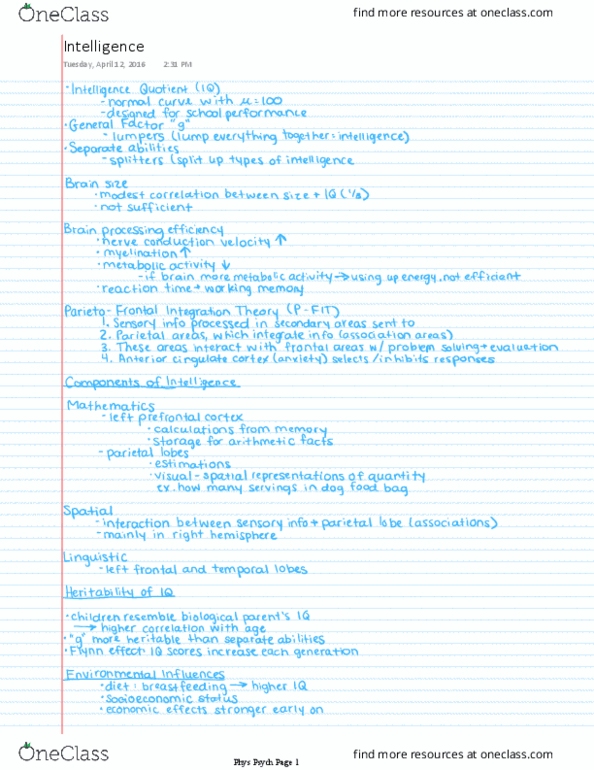 OneClass
find more resources at oneclass.com
Intelligence
Tuesday, April 12, 2016 2:31 PM
• Intelligence Quotient (IQ)
- normal curve with μ=100
- designed for school performance
• General Factor "g"
- lumpers (lump everything together = intelligence)
• Separate abilities
- splitters (split up types of intelligence
Brain size
• modest correlation between size + IQ (1/3)
• not sufficient
Brain processing efficiency
• nerve conduction velocity ↑
• myelination ↑
• metabolic activity ↓
- if brain more metabolic activity → using up energy, not efficient
• reaction time + working memory
Parieto-Frontal Integration Theory (P-FIT)
1. Sensory info processed in secondary areas sent to
2. Parietal areas, which integrate info (association areas)
3. These areas interact with frontal areas w/ problem solving + evaluation
4. Anterior cingulate cortex (anxiety) selects/inhibits responses
Components of Intelligence
Mathematics
- left prefrontal cortex
• calculations from memory
• storage for arithmetic facts
- parietal lobes
• estimations
• visual-spatial representations of quantity
ex. how many servings in dog food bag
Spatial
- interaction between sensory info + parietal lobe (associations)
- mainly in right hemisphere
Linguistic
- left frontal and temporal lobes
Heritability of IQ
• children resemble biological parent's IQ
→ higher correlation with age
• "g" more heritable than separate abilities
• Flynn effect: IQ scores increase each generation
Environmental Influences
• diet: breastfeeding → higher IQ
• socioeconomic status
• economic effects stronger early on
OneClass
Phys Psych Page 1
find more resources at oneclass.com